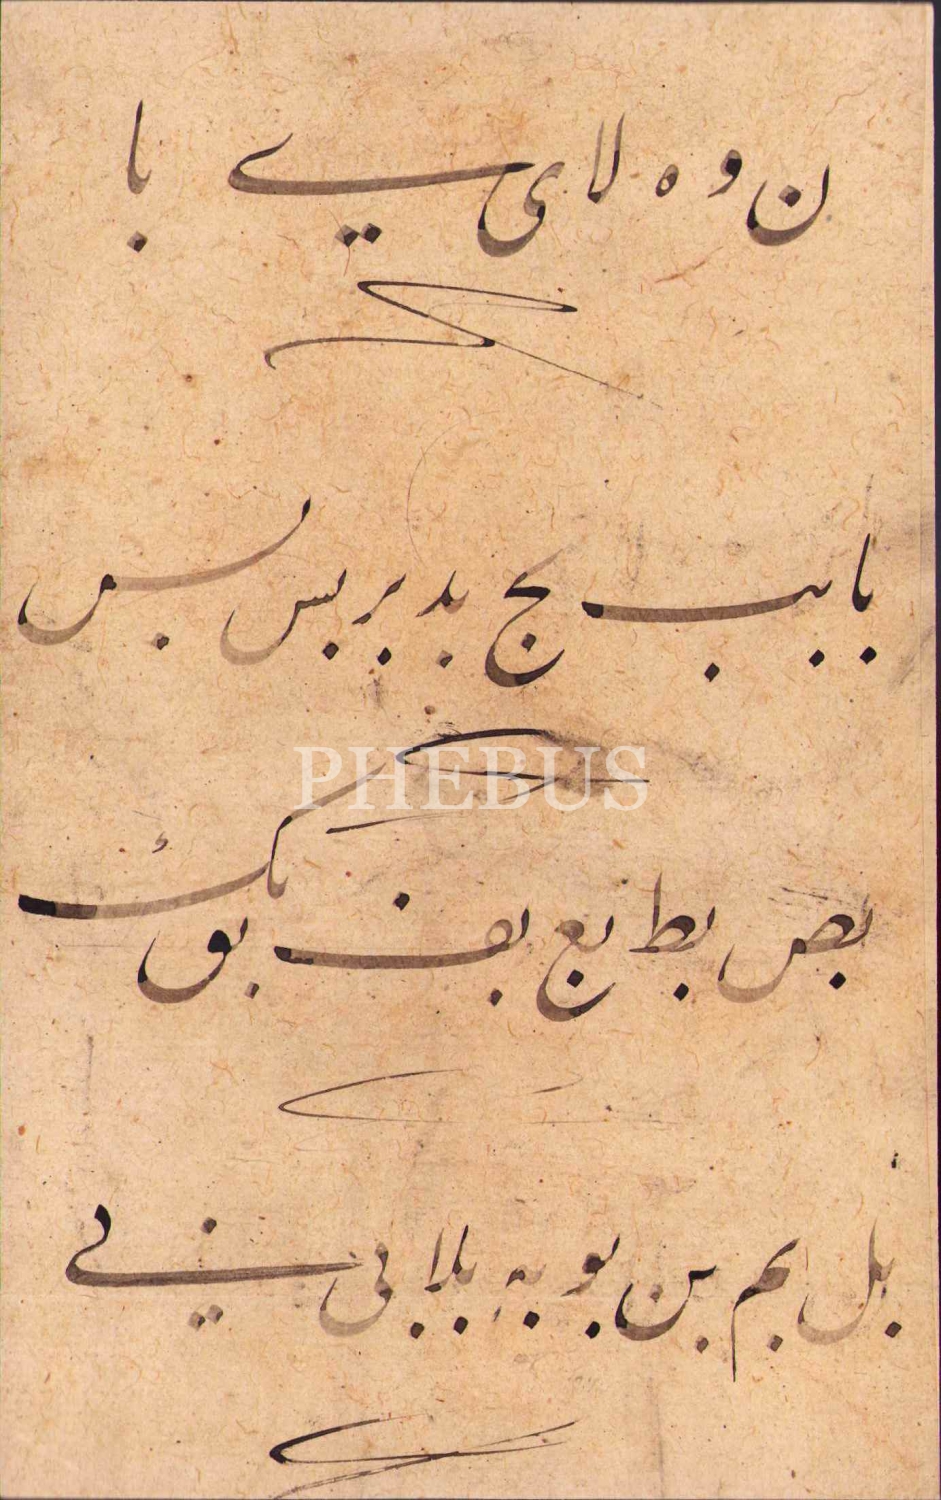 ن و ه لا ى ے با
با بب بج بد بر بس بس
PHEBUS
بص بط بع بف بق بك
بل بم بن بو به بلا بى نے